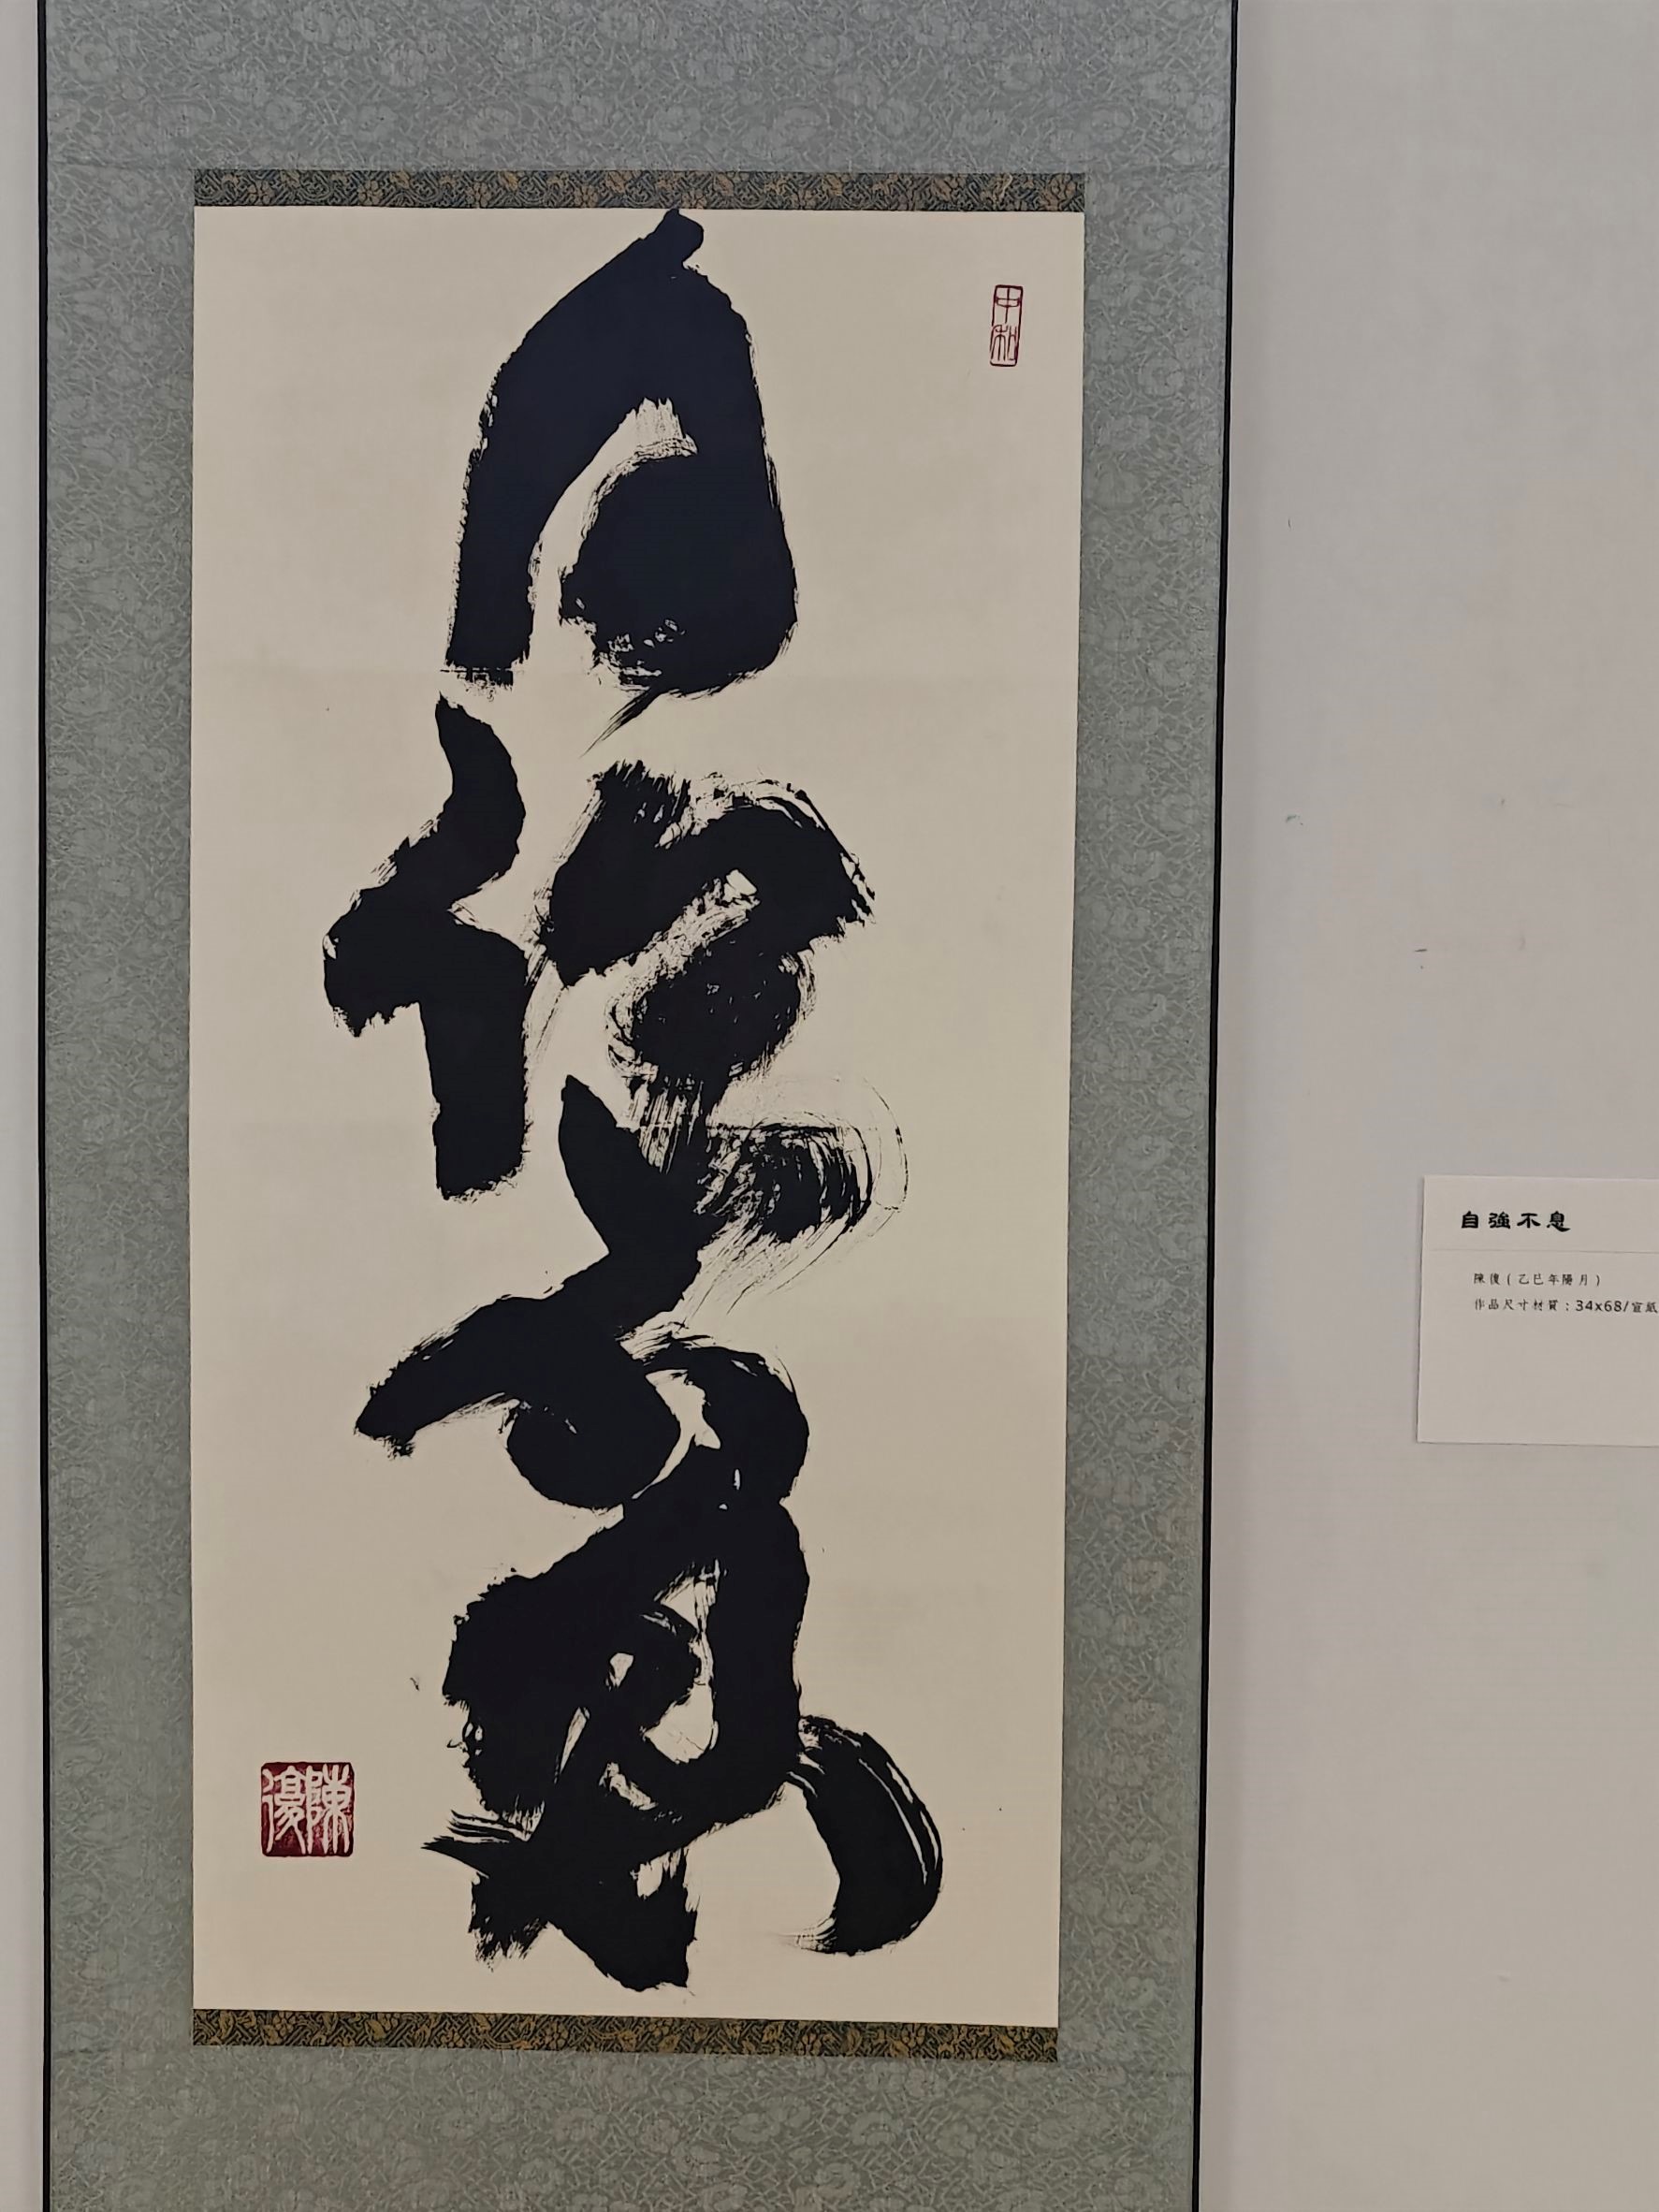 自強不息
中和
陳復
自強不息
陳復（乙巳年陽月）
作品尺寸材質：34x68/宣紙